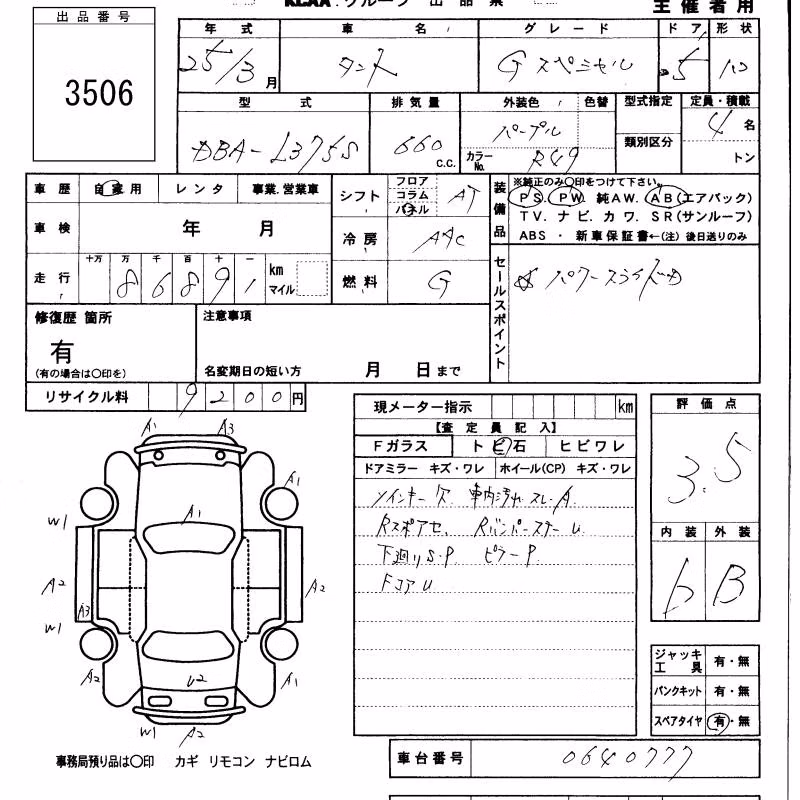 KCAA.グループ 出品票
主催者用
出品番号
3506
年式 車名 グレード ドア 形状
25/3月 タント Gスペシャル 5 ハコ
型式 排気量 外装色 色替 型式指定 定員・積載
DBA-L375S 660 c.c. パープル 4名
カラーNo. R49 類別区分 トン
車歴 自家用 レンタ 事業.営業車
シフト フロア コラム パネル AT
装備品 ※純正のみ○印をつけて下さい。
PS. PW. 純AW. AB(エアバック)
TV. ナビ. カワ. SR(サンルーフ)
ABS ・ 新車保証書←(注)後日送りのみ
車検 年 月
冷房 AAC
走行 十万 万 千 百 十 一 km マイル
8 6 8 9 1
燃料 G
セールスポイント
☆ パワースライドD
修復歴 箇所
有
(有の場合は○印を)
注意事項
名変期日の短い方 月 日まで
リサイクル料 9200円
現メーター指示 km
【査定員記入】
Fガラス トビ石 ヒビワレ
ドアミラー キズ・ワレ ホイール(CP) キズ・ワレ
メインキー欠 車内汚れ スレ A
Rスポアセ、 RバンパーステーU
下廻りS・P ピラーP
FコアU
評価点
3.5
内装 外装
b B
ジャッキ工具 有・無
パンクキット 有・無
スペアタイヤ 有・無
A1 A3
A1
A1
W1
A2 A3 A2
W1
A2 U2 A1
W1 A2
事務局預り品は○印 カギ リモコン ナビロム
車台番号 0640777